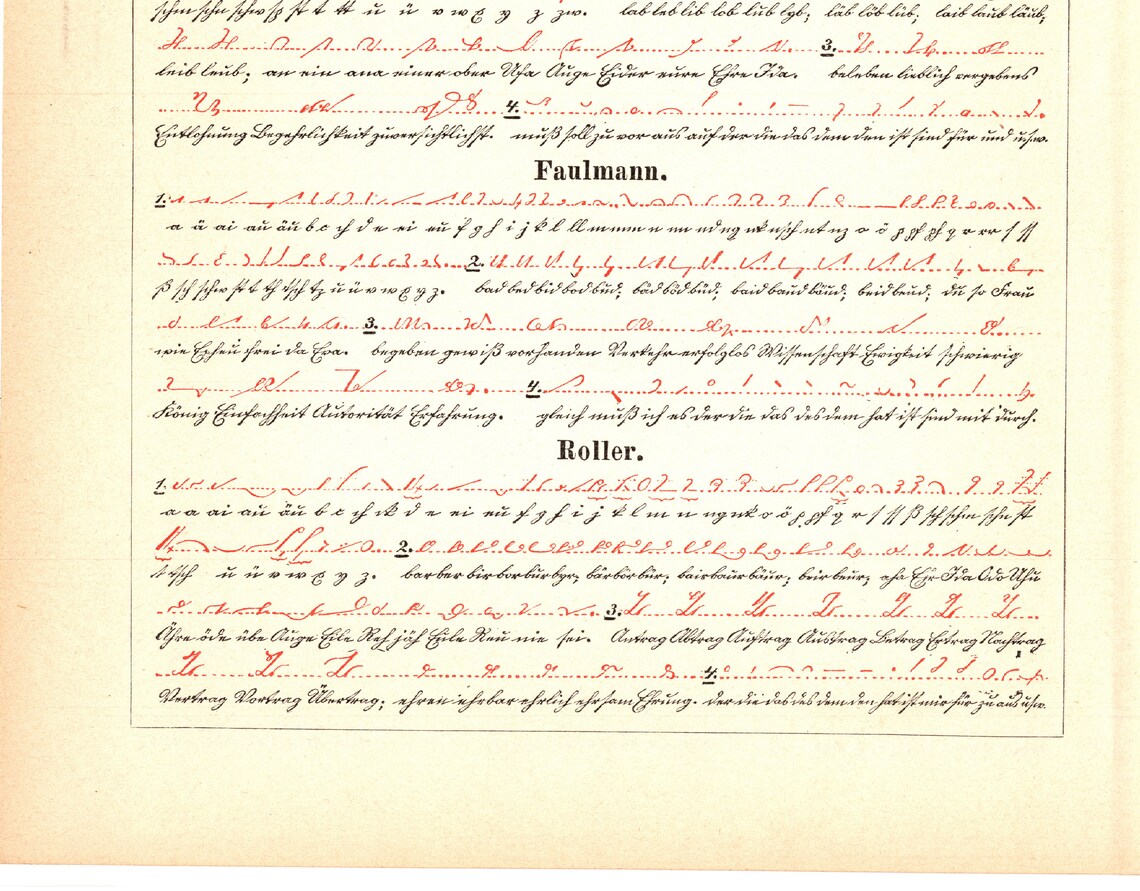 schm schn schw sp st t tt u ü v w x y z zw. lab leb lib lob lub lyb; läb löb lüb; laib laub läub;
3.
leib leub; an ein ana einer ober Ufa Auge Eider eure Ehre Ida. beleben lieblich vergebens
4.
Entlohnung Begehrlichkeit zuversichtlichst. muß soll zu vor aus auf der die das dem den ist sind für und u.s.w.
Faulmann.
1.
a ä ai au äu b c ch d e ei eu f g h i j k l ll m mm n nn nd ng nk nsch nt nz o ö p pf ph q r rr s ss
2.
ß sch schw st t th tsch tz u ü v w x y z. bad bed bid bod bud; bäd böd büd; baid baud bäud; beid beud; du so Frau
3.
wie Epheu frei da Eva. begeben gewiß vorhanden Verkehr erfolglos Wissenschaft Ewigkeit schwierig
4.
König Einfachheit Autorität Erfahrung. gleich muß ich es der die das des dem hat ist sind mit durch.
Roller.
1.
a ä ai au äu b c ch ck d e ei eu f g h i j k l m n ng nk o ö p pf q r s ss ß sch schm schn st
2.
t tsch u ü v w x y z. bar ber bir bor bur byr; bär bör bür; bair baur bäur; beir beur; aha Eir Ida Odo Uhu
3.
Ähre öde übe Auge Eile Reh jäh Eile Reu nie sei. Antrag Abtrag Auftrag Austrag Betrag Ertrag Nachtrag
4.
Vertrag Vortrag Übertrag; ehren ehrbar ehrlich ehrsam Ehrung. der die das des dem den hat ist mir für zu aus u.s.w.